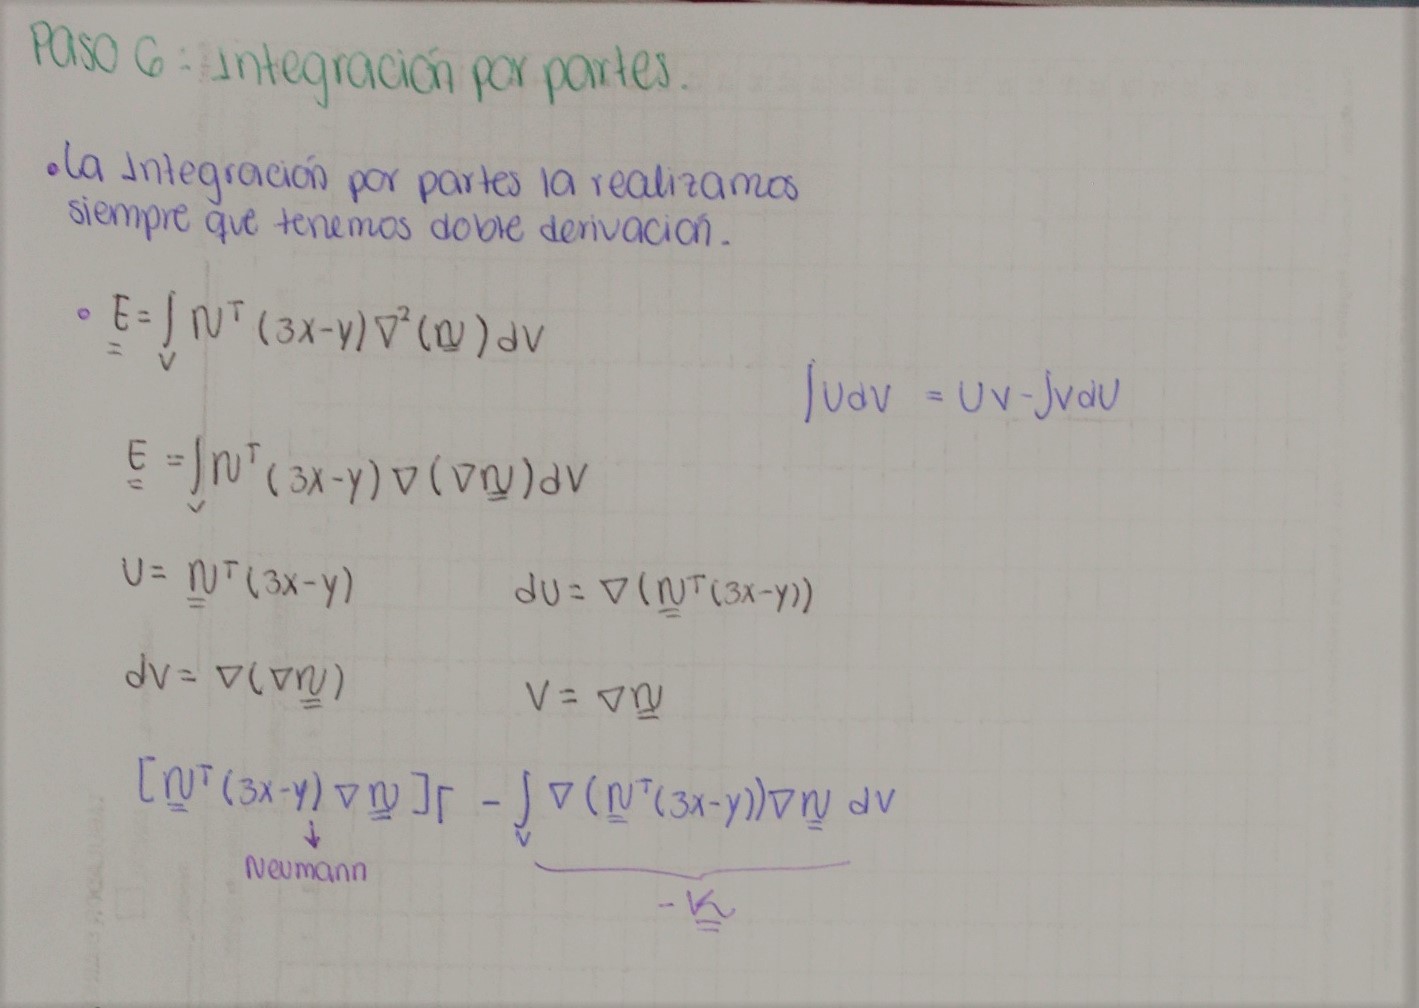 Paso 6: Integración por partes.
• La Integración por partes la realizamos
siempre que tenemos doble derivación.
∘ E = ∫_V N^T (3x-y) ∇²(N) dV
∫UdV = UV-∫VdU
E = ∫_V N^T (3x-y) ∇(∇N) dV
U = N^T (3x-y) dU = ∇(N^T(3x-y))
dV = ∇(∇N) V = ∇N
[N^T (3x-y) ∇N]Γ - ∫_V ∇(N^T(3x-y))∇N dV
↓
Neumann
-K